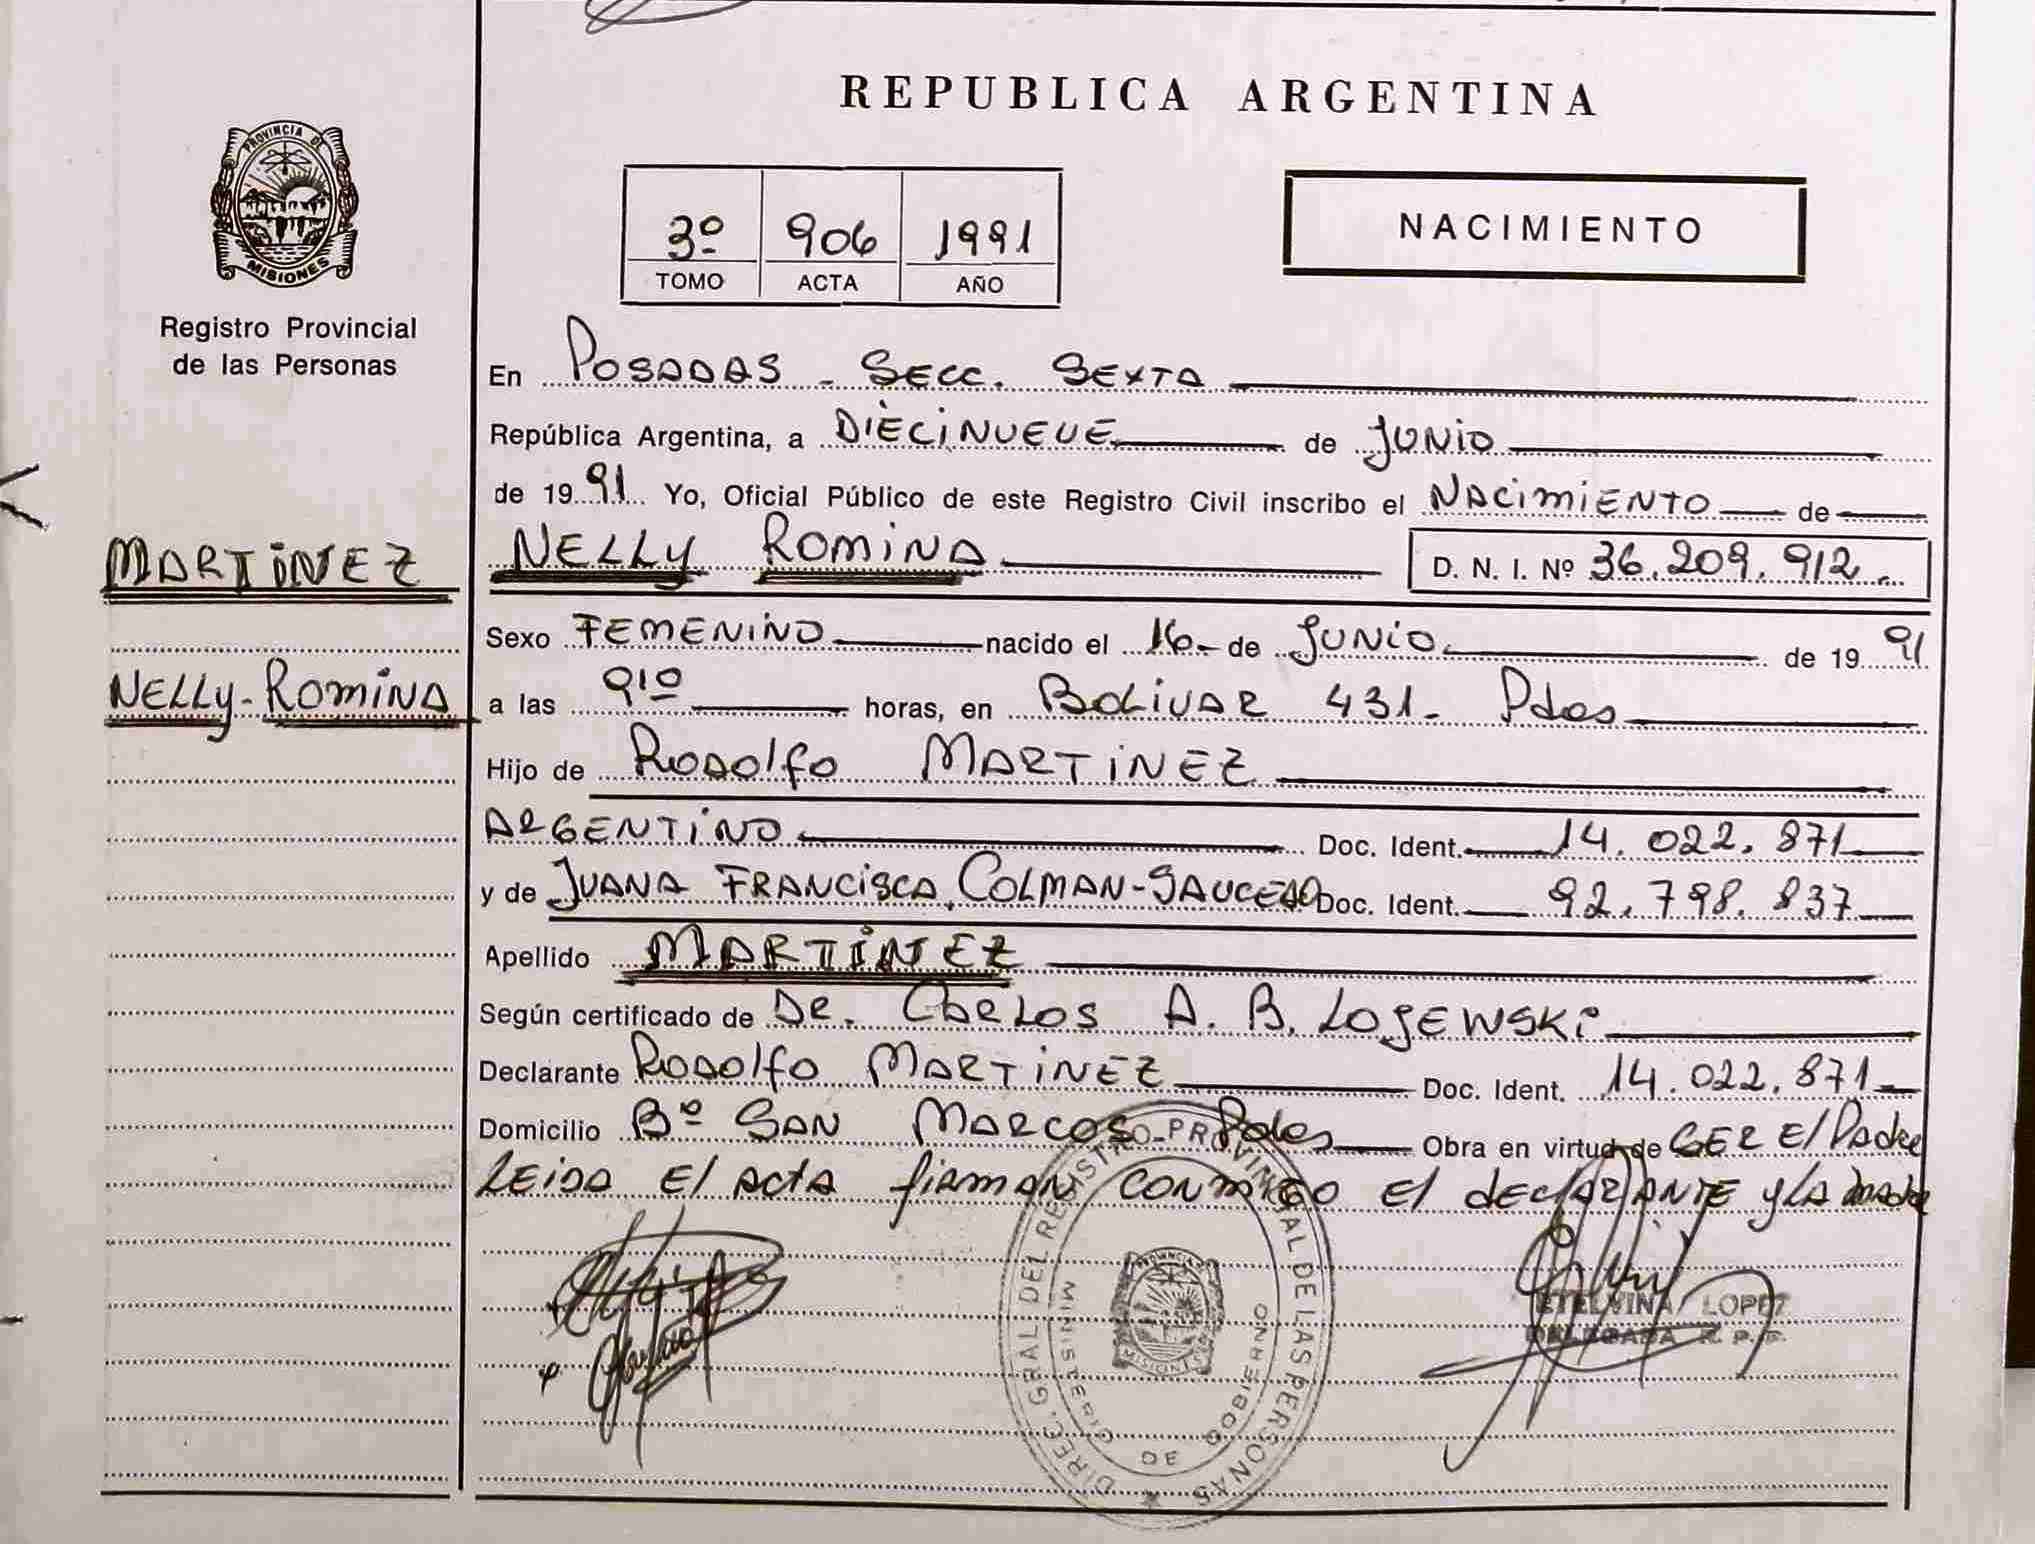 REPUBLICA ARGENTINA
PROVINCIA DE
MISIONES
Registro Provincial
de las Personas
3º 906 1991
TOMO ACTA AÑO
NACIMIENTO
En POSADAS - SECC. SEXTA
República Argentina, a DIECINUEVE de JUNIO
de 1991 Yo, Oficial Público de este Registro Civil inscribo el NACIMIENTO de
MARTINEZ
NELLY ROMINA D. N. I. Nº 36.209.912.
Sexo FEMENINO nacido el 16- de JUNIO de 1991
NELLY-ROMINA
a las 9,10 horas, en BOLIVAR 431- Pdas
Hijo de RODOLFO MARTINEZ
ARGENTINO Doc. Ident. 14.022.871
y de JUANA FRANCISCA COLMAN-SAUCEDO Doc. Ident. 92.798.837
Apellido MARTINEZ
Según certificado de DR. CARLOS A. B. LOJEWSKI
Declarante RODOLFO MARTINEZ Doc. Ident. 14.022.871
Domicilio Bº SAN MARCOS Pdas Obra en virtud de SER El Padre
LEIDA El ACTA firman conmigo El declarante y la madre
DIREC. GRAL DEL REGISTRO PROVINCIAL DE LAS PERSONAS
MINISTERIO DE GOBIERNO
PROVINCIA
MISIONES
ETELVINA LOPEZ
DELEGADA R. P. P.